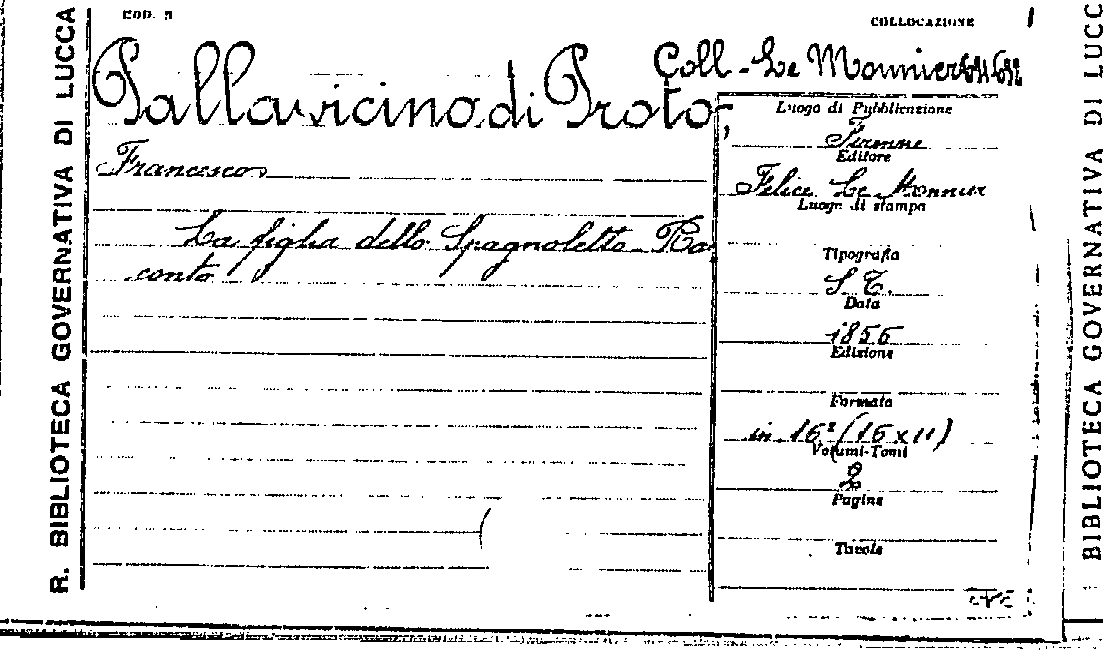 COD. 5
COLLOCAZIONE
Coll - Le Monnier 631.632
R. BIBLIOTECA GOVERNATIVA DI LUCCA
Pallavicino di Proto,
Francesco
La figlia dello Spagnoletto - Rac
conto
Luogo di Pubblicazione
Firenze
Editore
Felice Le Monnier
Luogo di stampa
Tipografia
S T.
Data
1855
Edizione
Formato
in 16º (16 x 11)
Volumi-Tomi
2
Pagine
Tavole
BIBLIOTECA GOVERNATIVA DI LUCC